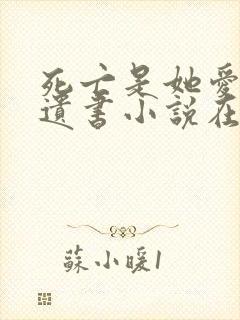 死亡是她愛
遺書小說在
蘇小暖1